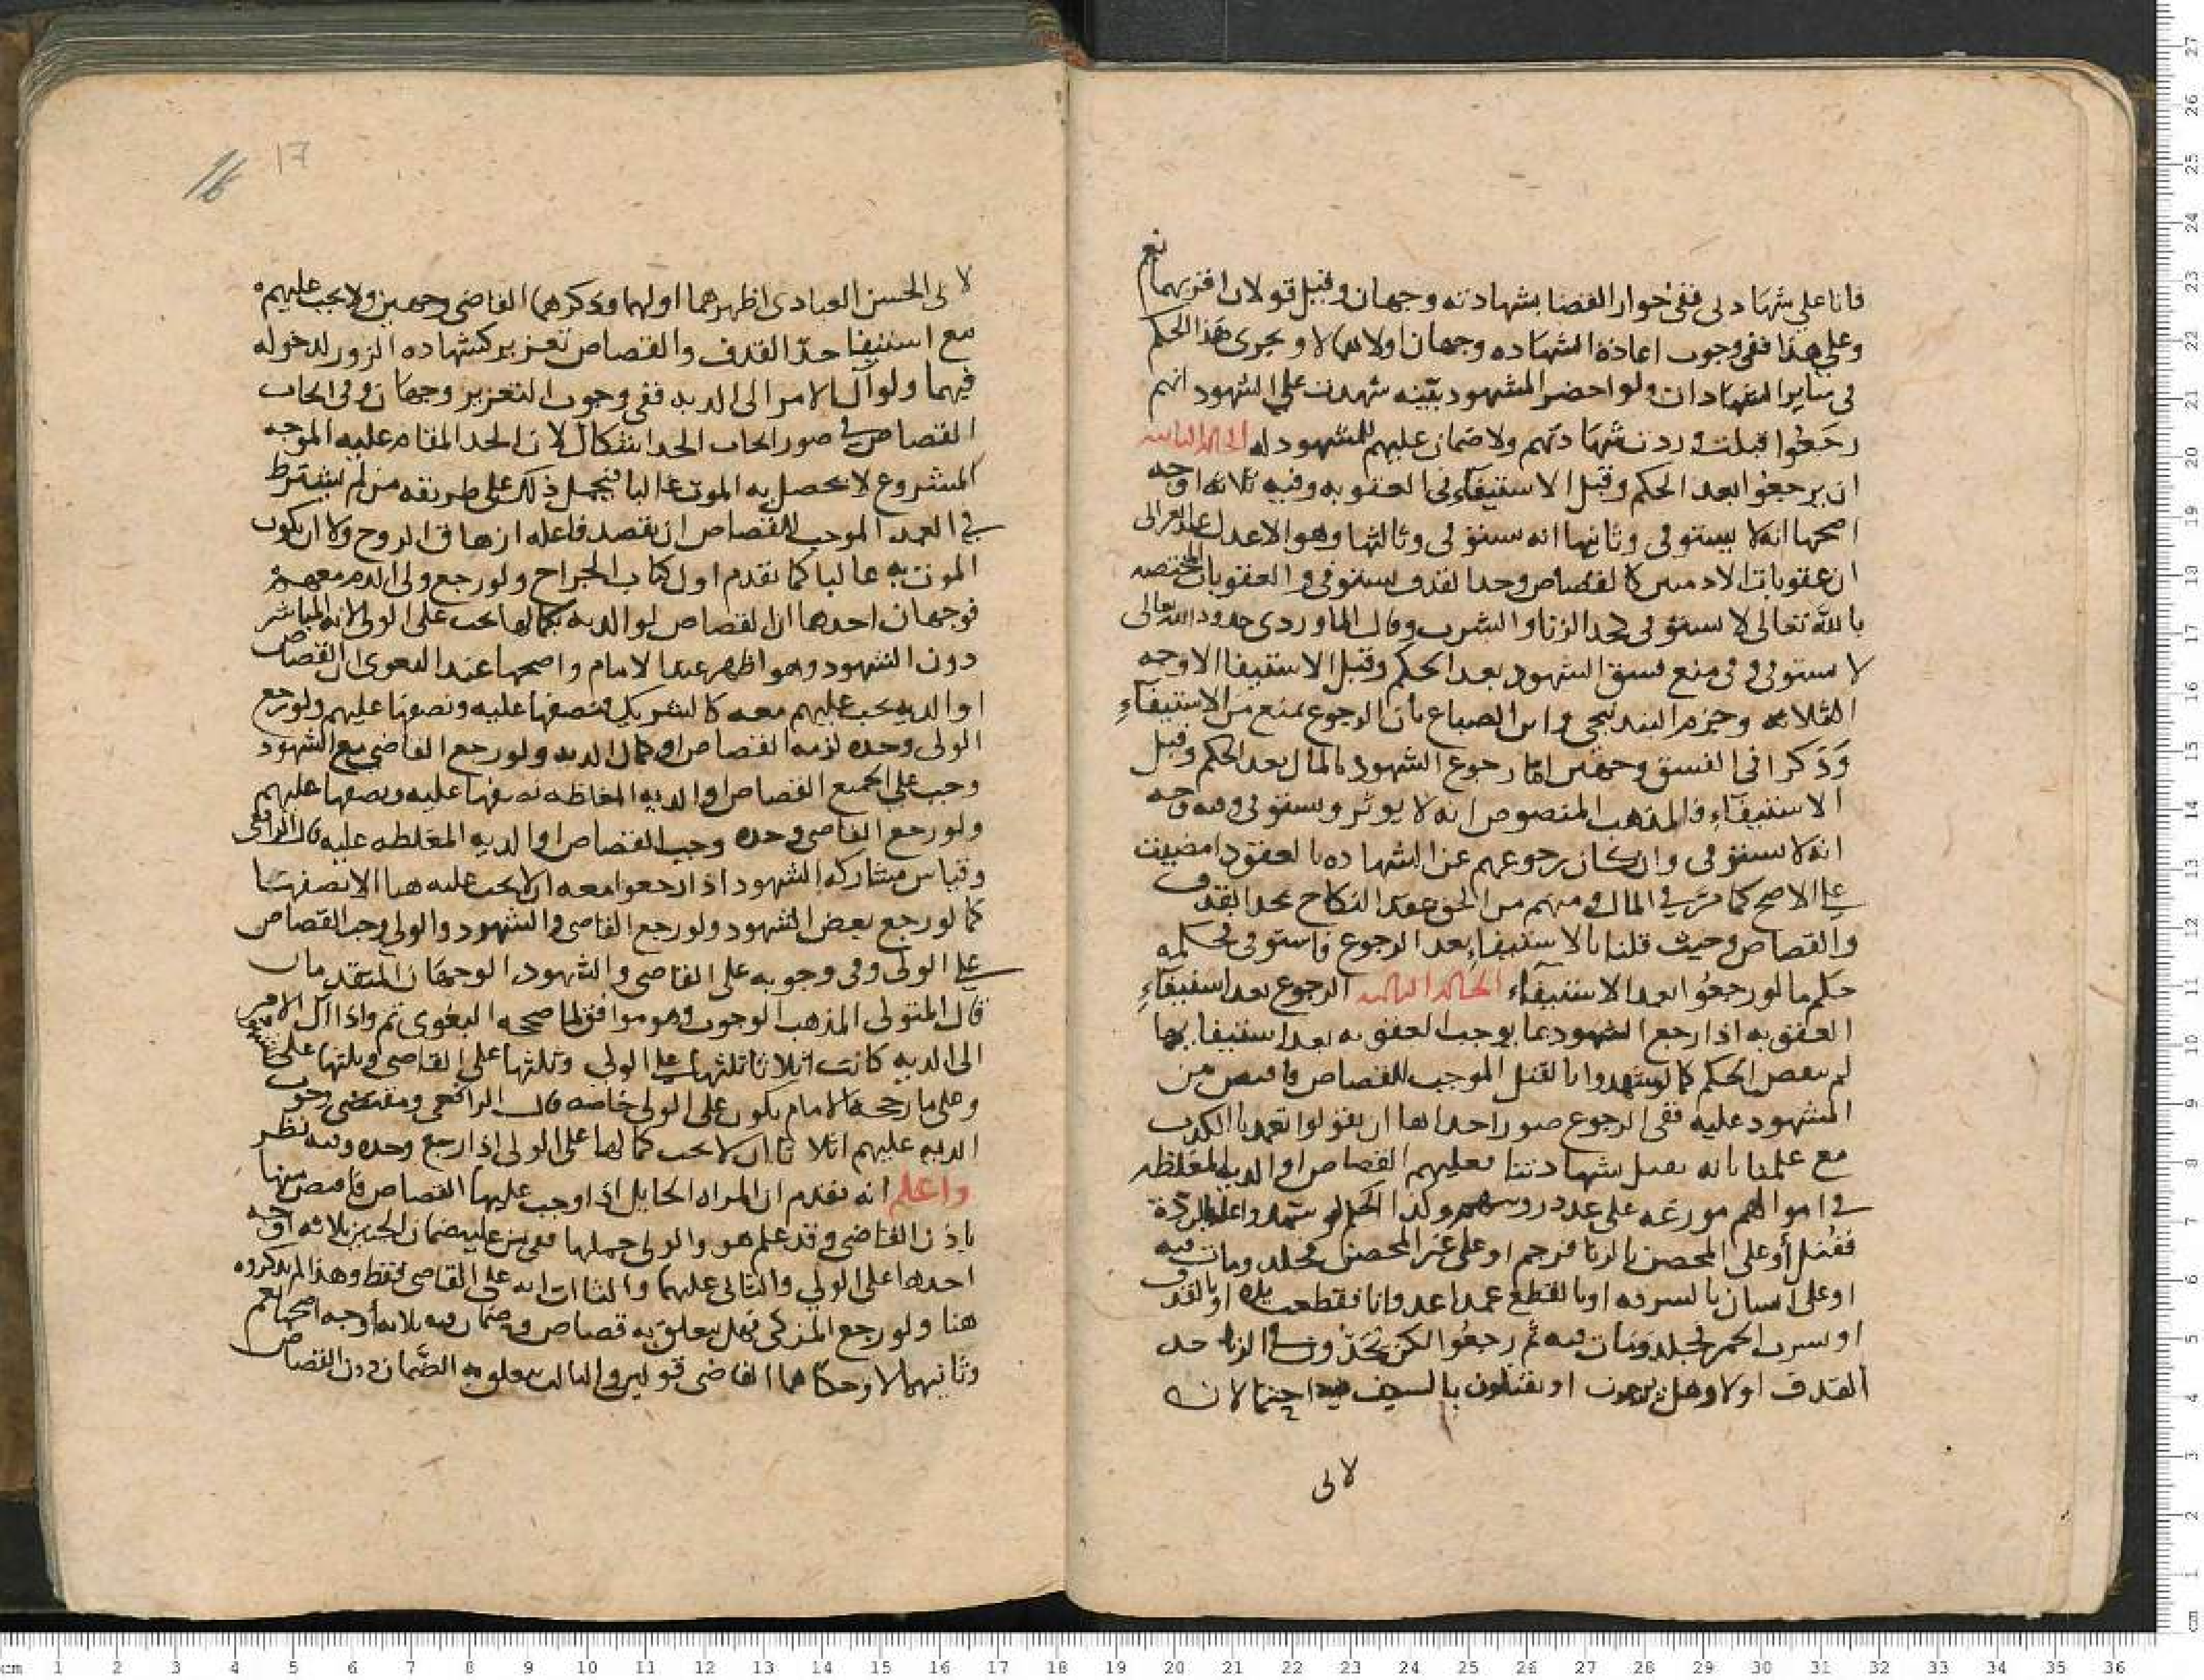 فانا على شهادتى ففى جواز القضا بشهادته وجهان وقيل قولان اقربهما نعم
وعلى هذا ففى وجوب اعادة الشهاده وجهان اولاهما لا ويجرى هذا الحكم
فى ساير الشهادات ولو احضر المشهود بينه شهدت على الشهود انهم
رجعوا قبلت وردت شهادتهم ولا ضمان عليهم للمشهود له الحاله الثانيه
ان يرجعوا بعد الحكم وقبل الاستيفاء فى العقوبه وفيه ثلاثه اوجه
اصحها انه لا يستوفى وثانيها انه يستوفى وثالثها وهو الاعدل عند الغزالى
ان عقوبات الادميين كالقصاص وحد القذف يستوفى والعقوبات المختصه
بالله تعالى لا يستوفى كحد الزنا والشرب وقال الماوردى حدود الله تعالى
لا يستوفى وفى منع فسق الشهود بعد الحكم وقبل الاستيفا الاوجه
الثلاثه وجزم البندنيجى وابن الصباغ بان الرجوع يمنع من الاستيفاء
وذكرا فى الفسق وجهين اما رجوع الشهود بالمال بعد الحكم وقبل
الاستيفاء فالمذهب المنصوص انه لا يوثر ويستوفى وفيه وجه
انه لا يستوفى وان كان رجوعهم عن الشهاده بالعقود امضيت
على الاصح كما مر فى المال ومنهم من الحق عقد النكاح بحد القذف
والقصاص وحيث قلنا بالاستيفاء بعد الرجوع فاستوفى فحكمه
حكم ما لو رجعوا بعد الاستيفاء الحاله الثالثه الرجوع بعد استيفاء
العقوبه اذا رجع الشهود بما يوجب العقوبه بعد استيفائها
لم ينقض الحكم كما لو شهدوا بالقتل الموجب للقصاص واقتص من
المشهود عليه ففى الرجوع صور احداها ان يقولوا تعمدنا الكذب
مع علمنا بانه يقتل بشهادتنا فعليهم القصاص او الديه المغلظه
فى اموالهم موزعه على عدد روسهم وكذا الحكم لو شهدوا عليه بالردة
فقتل أو على المحصن بالزنا فرجم او على غير المحصن فجلد ومات فيه
او على انسان بالسرقه او بالقطع عمدا عدوانا فقطعت يده او بالقذف
او شرب الخمر فجلد ومات فيه ثم رجعوا لكن يحدون فى الزنا حد
القذف اولا وهل يرجمون او يقتلون بالسيف فيه احتمالان
لابى
لابى الحسن العبادى اظهرهما اولهما وذكرهما القاضى وجهين ولا يجب عليهم
مع استيفا حد القذف والقصاص تعزير كشهاده الزور لدخوله
فيهما ولو آل الامر الى الديه ففى وجوب التعزير وجهان وفى ايجاب
القصاص فى صور ايجاب الحد اشكال لان الحد المقام عليه الموجه
المشروع لا يحصل به الموت غالبا فيحمل ذلك على طريقه من لم يشترط
فى العمد الموجب للقصاص ان يقصد فاعله ازهاق الروح ولا ان يكون
الموت به غالبا كما تقدم اول كتاب الجراح ولو رجع ولى الدم معهم
فوجهان احدهما ان القصاص او الديه بكمالها يجب على الولى لانه المباشر
دون الشهود وهو اظهر عند الامام واصحهما عند البغوى ان القصاص
او الديه يجب عليهم معه كالشريك نصفها عليه ونصفها عليهم ولو رجع
الولى وحده لزمه القصاص او كمال الديه ولو رجع القاضى مع الشهود
وجب على الجميع القصاص او الديه المغلظه نصفها عليه ونصفها عليهم
ولو رجع القاضى وحده وجب القصاص او الديه المغلظه عليه قال الرافعى
وقياس مشاركه الشهود اذا رجعوا معه ان لا يجب عليه هنا الا نصفها
كما لو رجع بعض الشهود ولو رجع القاضى والشهود والولى وجب القصاص
على الولى وفى وجوبه على القاضى والشهود الوجهان المتقدمان
قال المتولى المذهب الوجوب وهو موافق لما صححه البغوى ثم واذا آل الامر
الى الديه كانت اثلاثا ثلثها على الولى وثلثها على القاضى وثلثها على الشهود
وعلى ما رجحه الامام يكون على الولى خاصه قال الرافعى ومقتضى وجوب
الديه عليهم اثلاثا ان لا يجب كمالها على الولى اذا رجع وحده وفيه نظر
واعلم انه تقدم ان المراه الحايل اذا وجب عليها القصاص فاقتص منها
باذن القاضى وقد علم هو والولى حملها ففى من عليه ضمان الجنين ثلاثه اوجه
احدها على الولى والثانى عليهما والثالث انه على القاضى فقط وهذا لم يذكروه
هنا ولو رجع المزكى فهل يتعلق به قصاص وضمان فيه ثلاثه أوجه اصحها نعم
وثانيهما لا وحكاهما القاضى قولين والثالث يتعلق به الضمان دون القصاص
17
16